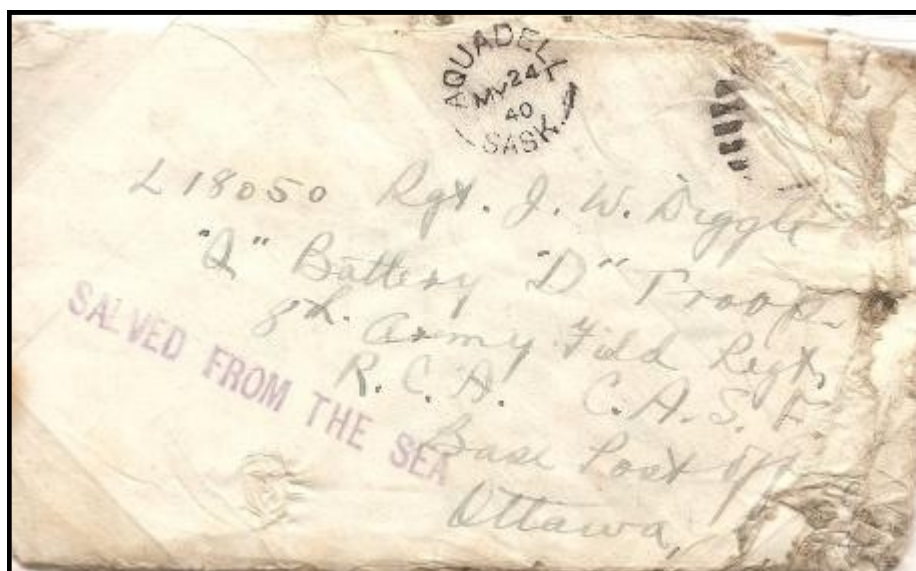 AQUADELL
MY 24
40
SASK.
L 18050 Rgt. J. W. Diggle
"Q" Battery "D" Troop
8th. Army Field Regt,
R. C. A. C. A. S. F.
Base Post Off
Ottawa,
SALVED FROM THE SEA